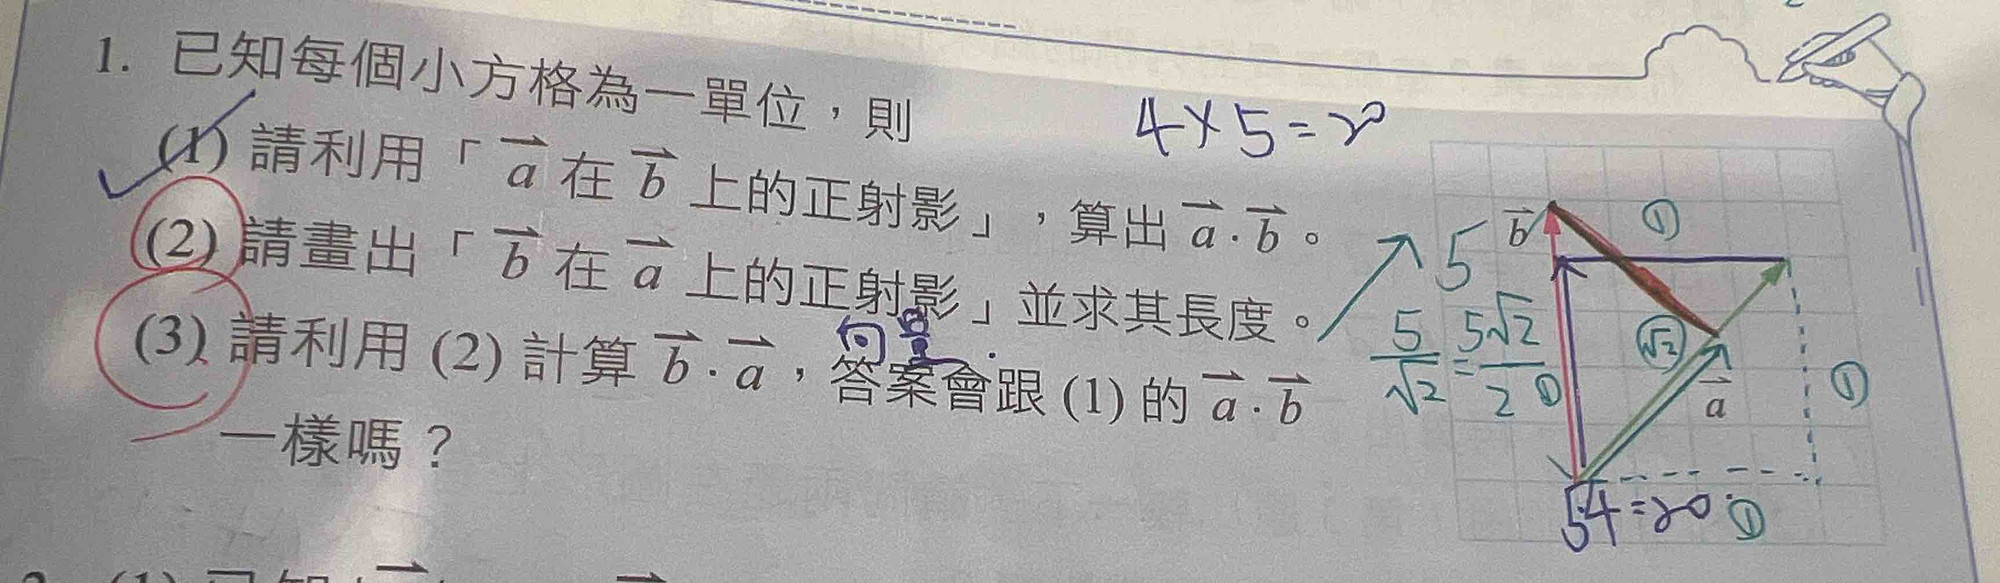 1. 已知每個小方格為一單位，則
(1) 請利用「a 在 b 上的正射影」，算出 a · b。
(2) 請畫出「b 在 a 上的正射影」並求其長度。
(3) 請利用 (2) 計算 b · a，答案會跟 (1) 的 a · b
一樣嗎？
向量
4×5=20
5
5/√2 = 5√2/2
b
①
√2
①
①
a
5·4=20
①